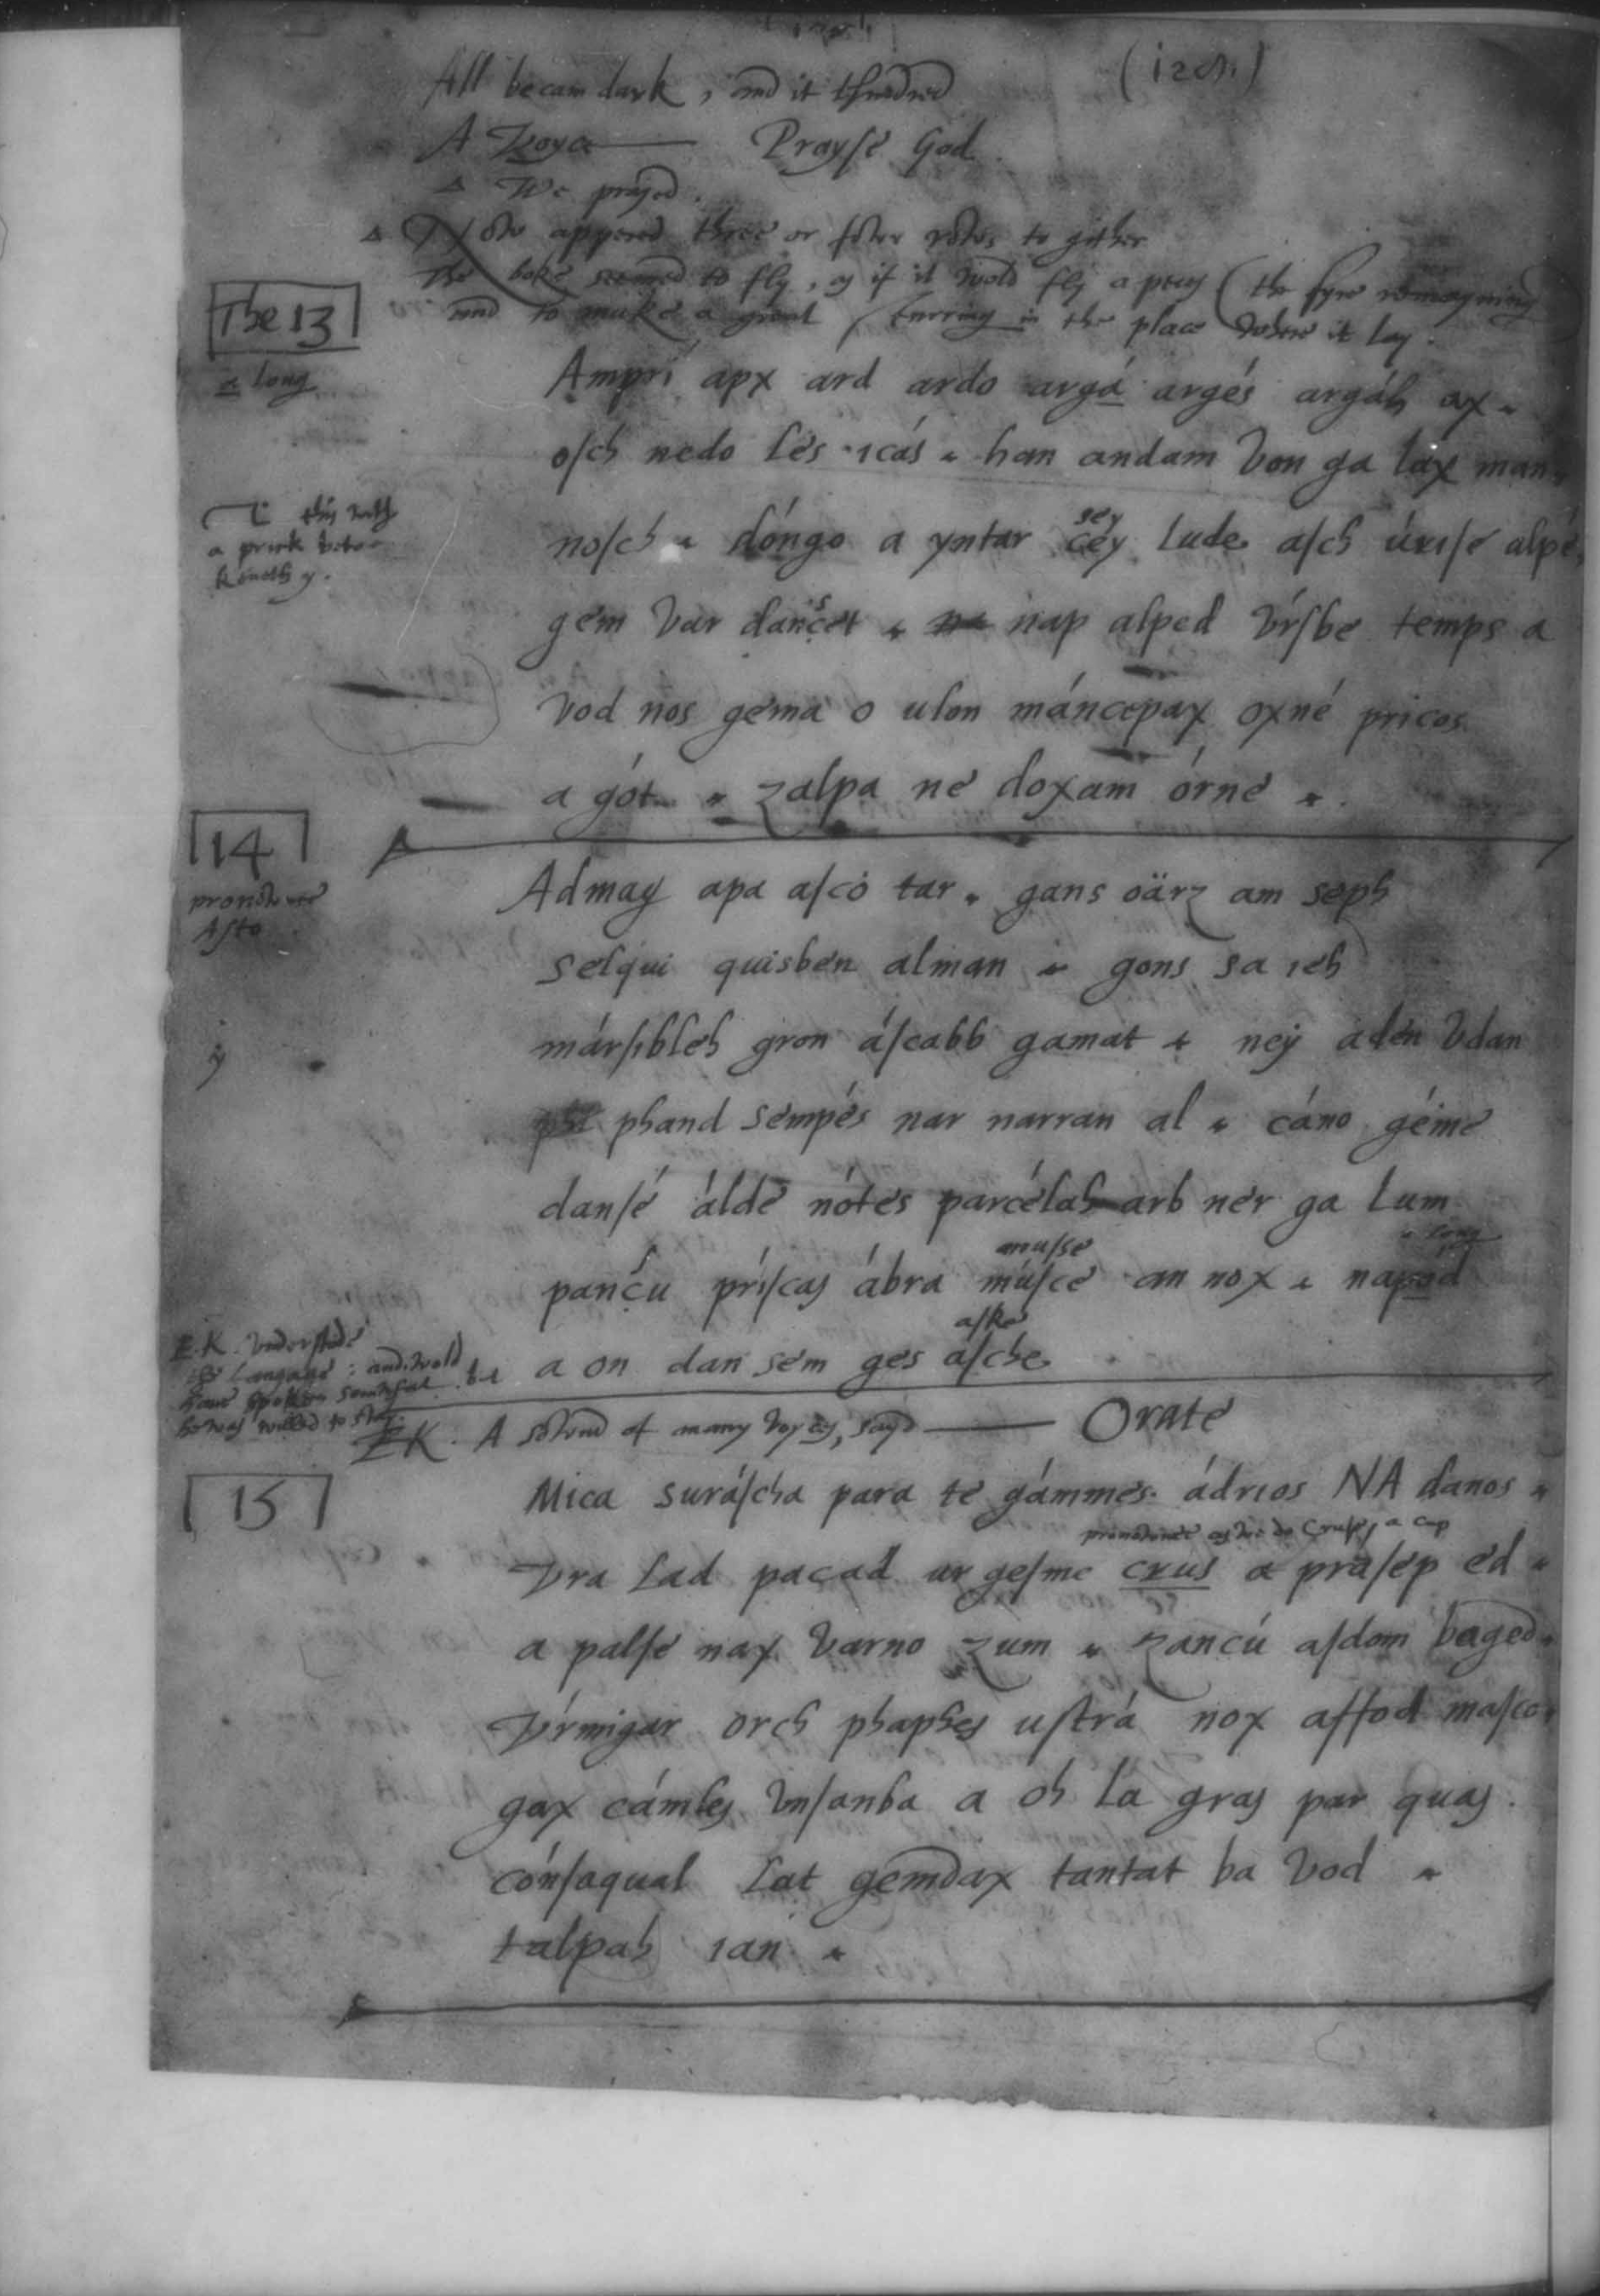 All becam dark, and it thundred
A Voyce — Prayse God.
Δ We prayed.
Δ Now appered three or fowr to gither
The boke seemed to fly, as if it wold fly a peces (the fyre remayning
and to make a great sturring in the place where it lay.
The 13
a long
Ampri apx ard ardo argá argés argáh ax .
osch nedo les icás . han andam von ga lax man .
this with
a prick
nosch . dóngo a yntar cey lude asch úrise alpé
sey
gem var dancet . nap alped vrsbe temps a
s
vod nos gema o ulon máncepax oxné pricos
a gót . zalpa ne doxam órne .
14
pronownce
Asto
Admay apa asco tar . gans oärz am seph
selqui quisben alman . gons sa ieh
ÿ
mársibleh gron áscabb gamat . neÿ aden vdan
phand sempés nar narran al . cáno géme
dansé álde nótes parcélah arb ner ga lum
musse
a long
pancu príscas ábra músce an nox . napod
s
aske
a on dan sem ges asche
E.K. vnderstode
the Langage : and wold
haue spoken somthing but
he was willed to stay.
E K. A sownd of many voyces, sayd — Orate
15
Mica suráscha para te gámmes ádrios NA danos .
pronownce as we do cruse, a cup
Vra lad pacad ur gesme crus a prasep ed .
a palse nax varno zum . zancú asdom baged .
Vrmigar orch phaphes ustrá nox affod masco .
gax cámles vnsanba a oh la gras par quas .
cónsaqual lat gemdax tantat ba vod .
talpah ian .